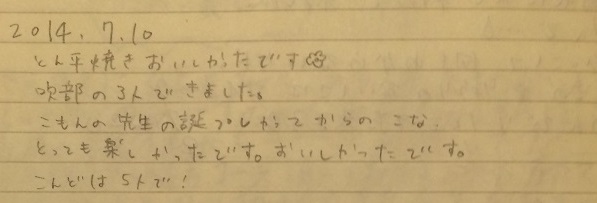 2014.7.10
とん平焼きおいしかったです
吹部の3人できました。
こもんの先生の誕プレかってからのこな.
とっても楽しかったです。おいしかったです。
こんどは5人で!